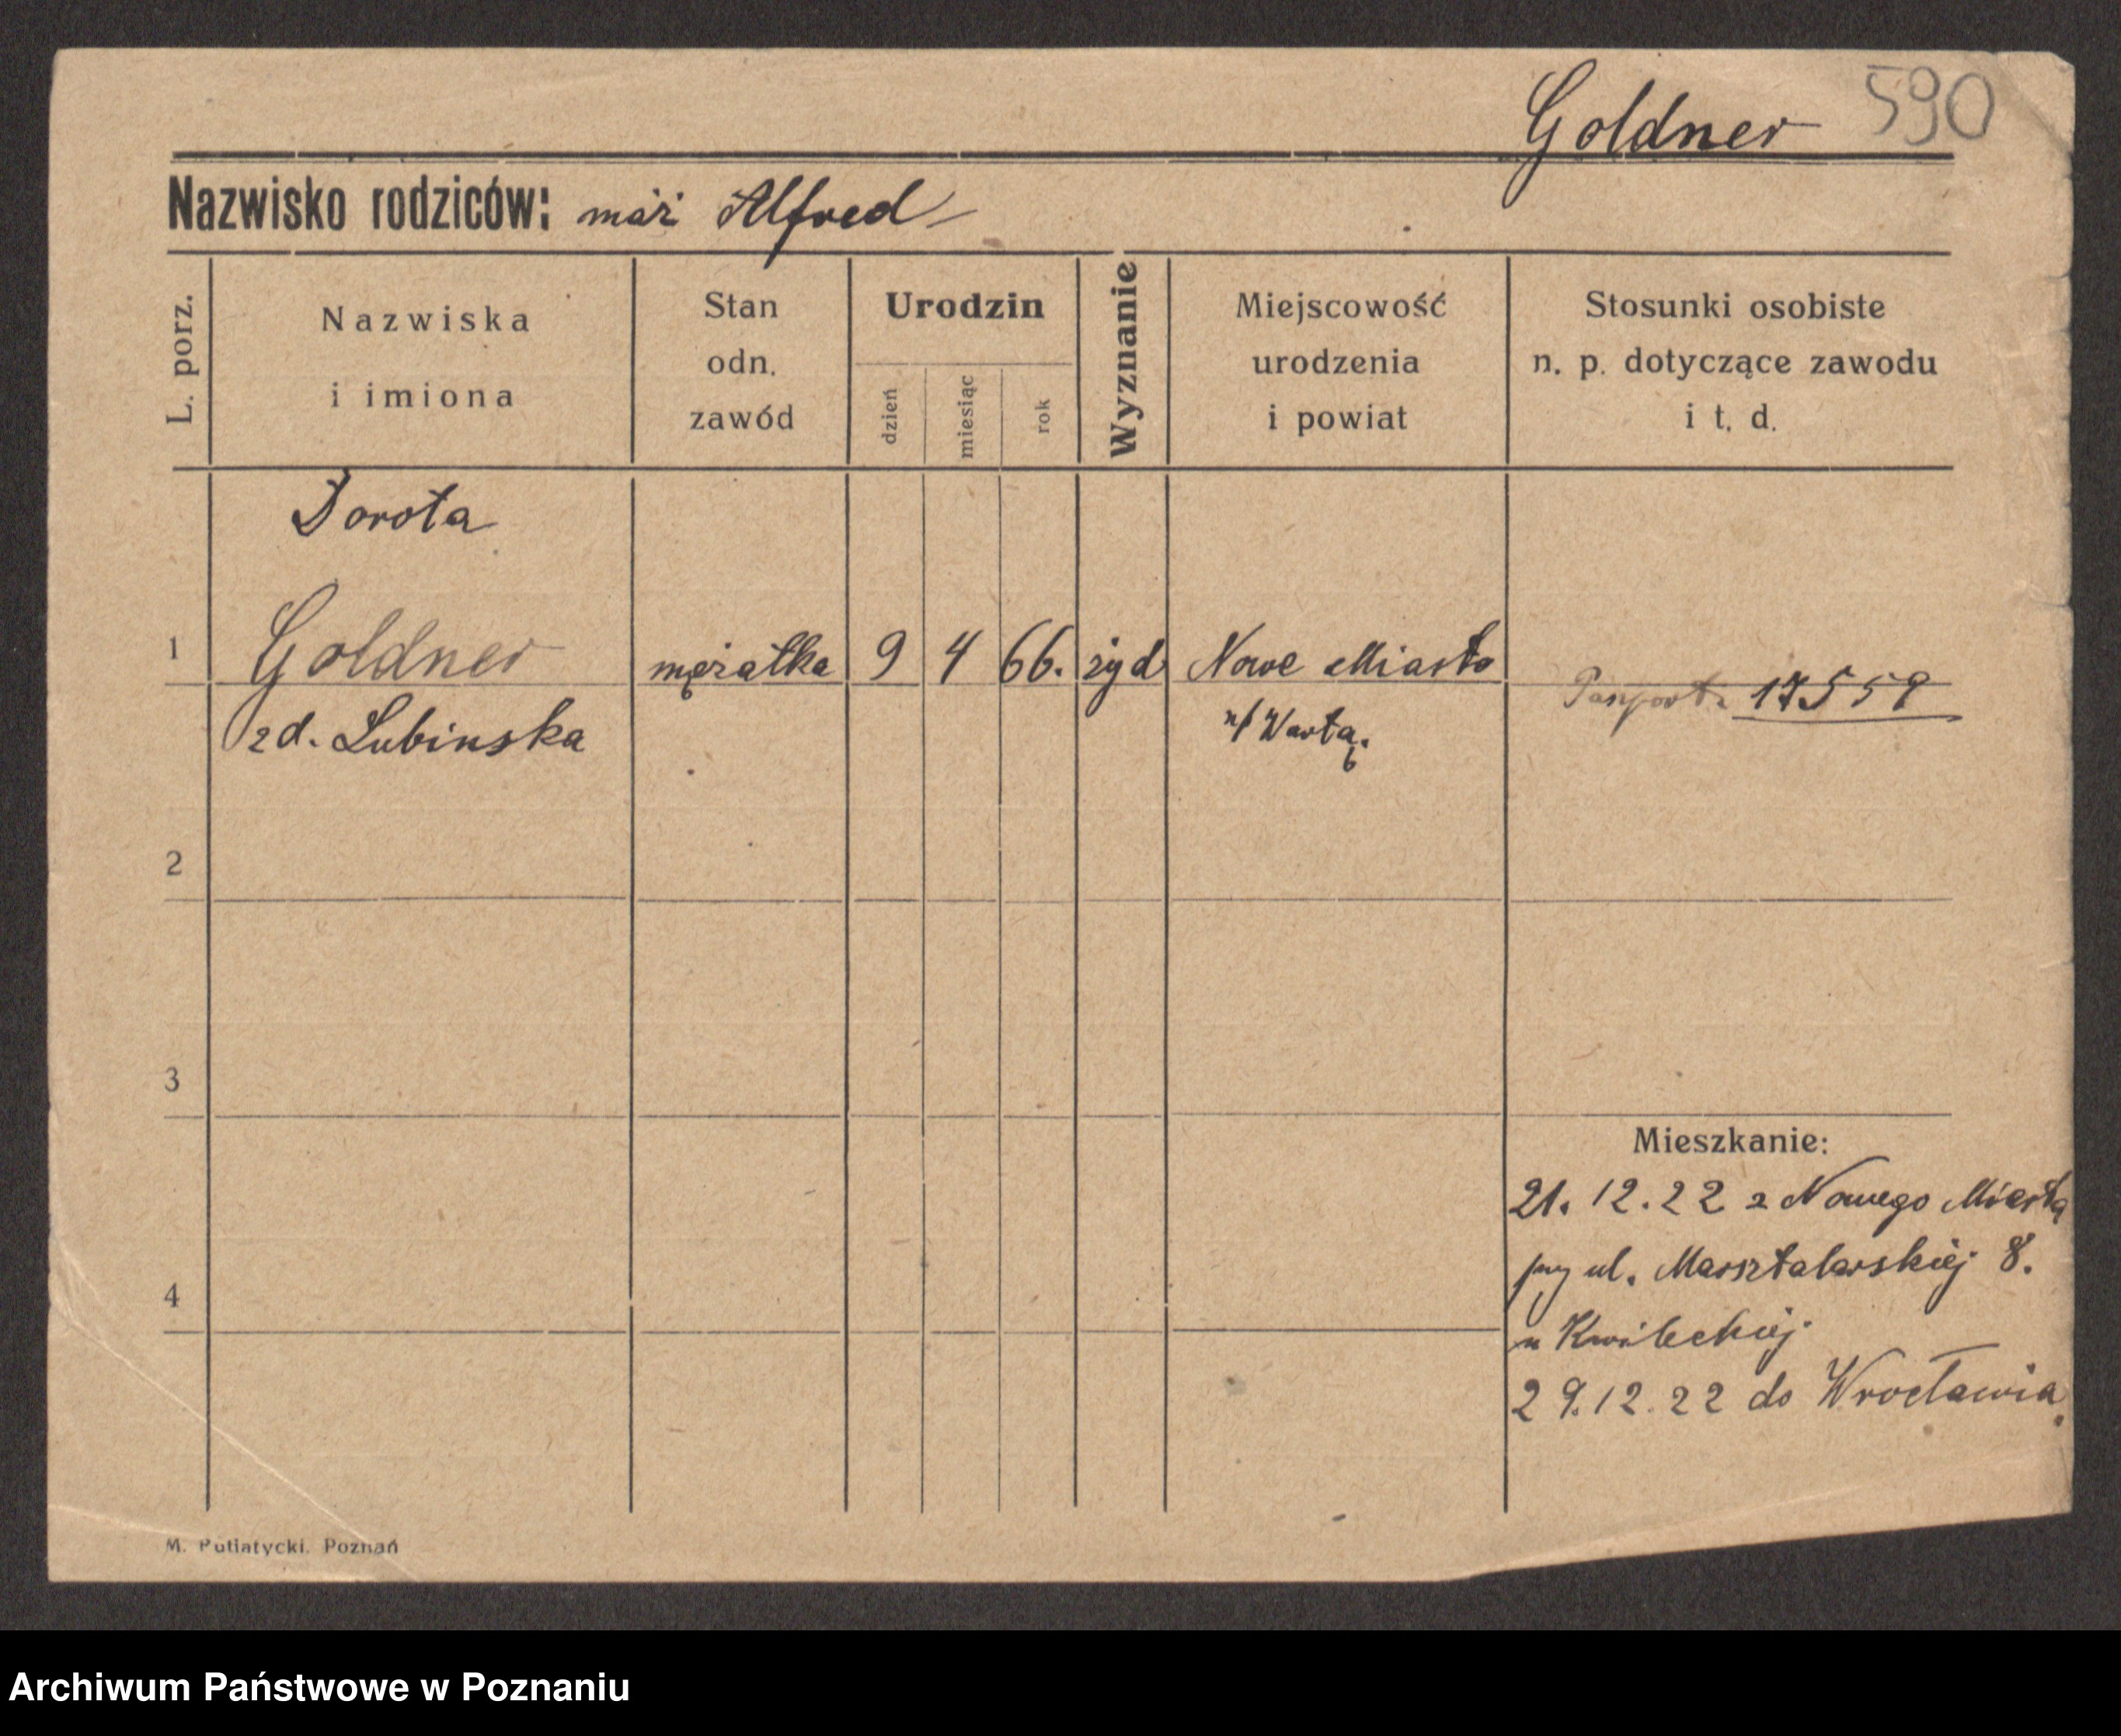 Goldner 590
Nazwisko rodziców: mąż Alfred
L. porz.
Nazwiska
i imiona
Stan
odn.
zawód
Urodzin
dzień
miesiąc
rok
Wyznanie
Miejscowość
urodzenia
i powiat
Stosunki osobiste
n. p. dotyczące zawodu
i t. d.
Dorota
1 Goldner mężatka 9 4 66. żyd Nowe Miasto Paszport: 17559
zd. Lubinska n/Wartą.
2
3
Mieszkanie:
21. 12. 22 z Nowego Miasta
4 przy ul. Masztalarskiej 8.
u Kwileckiej
29. 12. 22 do Wrocławia.
M. Putiatycki. Poznań
Archiwum Państwowe w Poznaniu